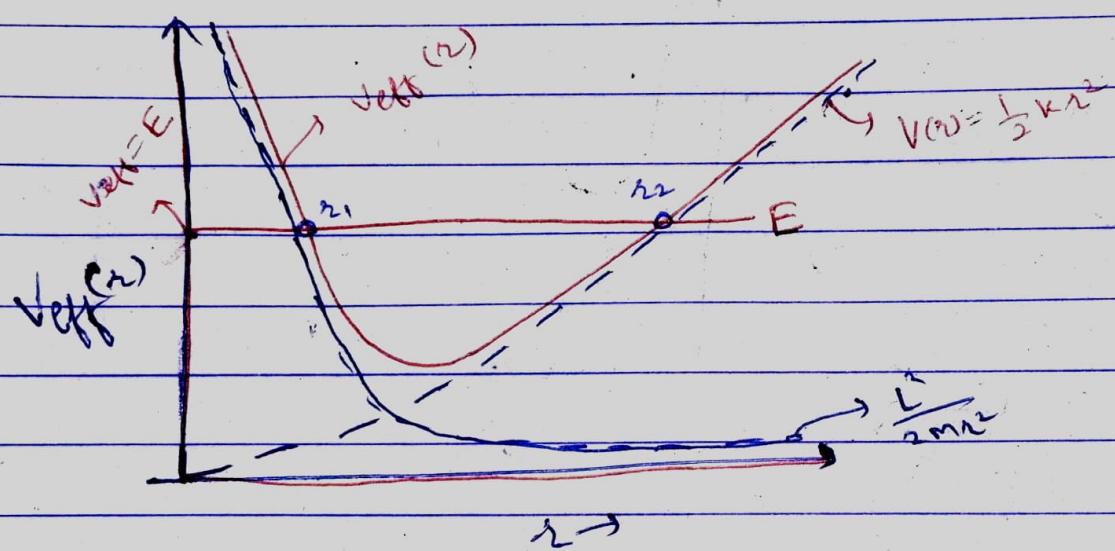 Veff(r)
V(r) = 1/2 kr²
Veff = E
r₁
r₂
E
Veff(r)
L²/2mr²
r →